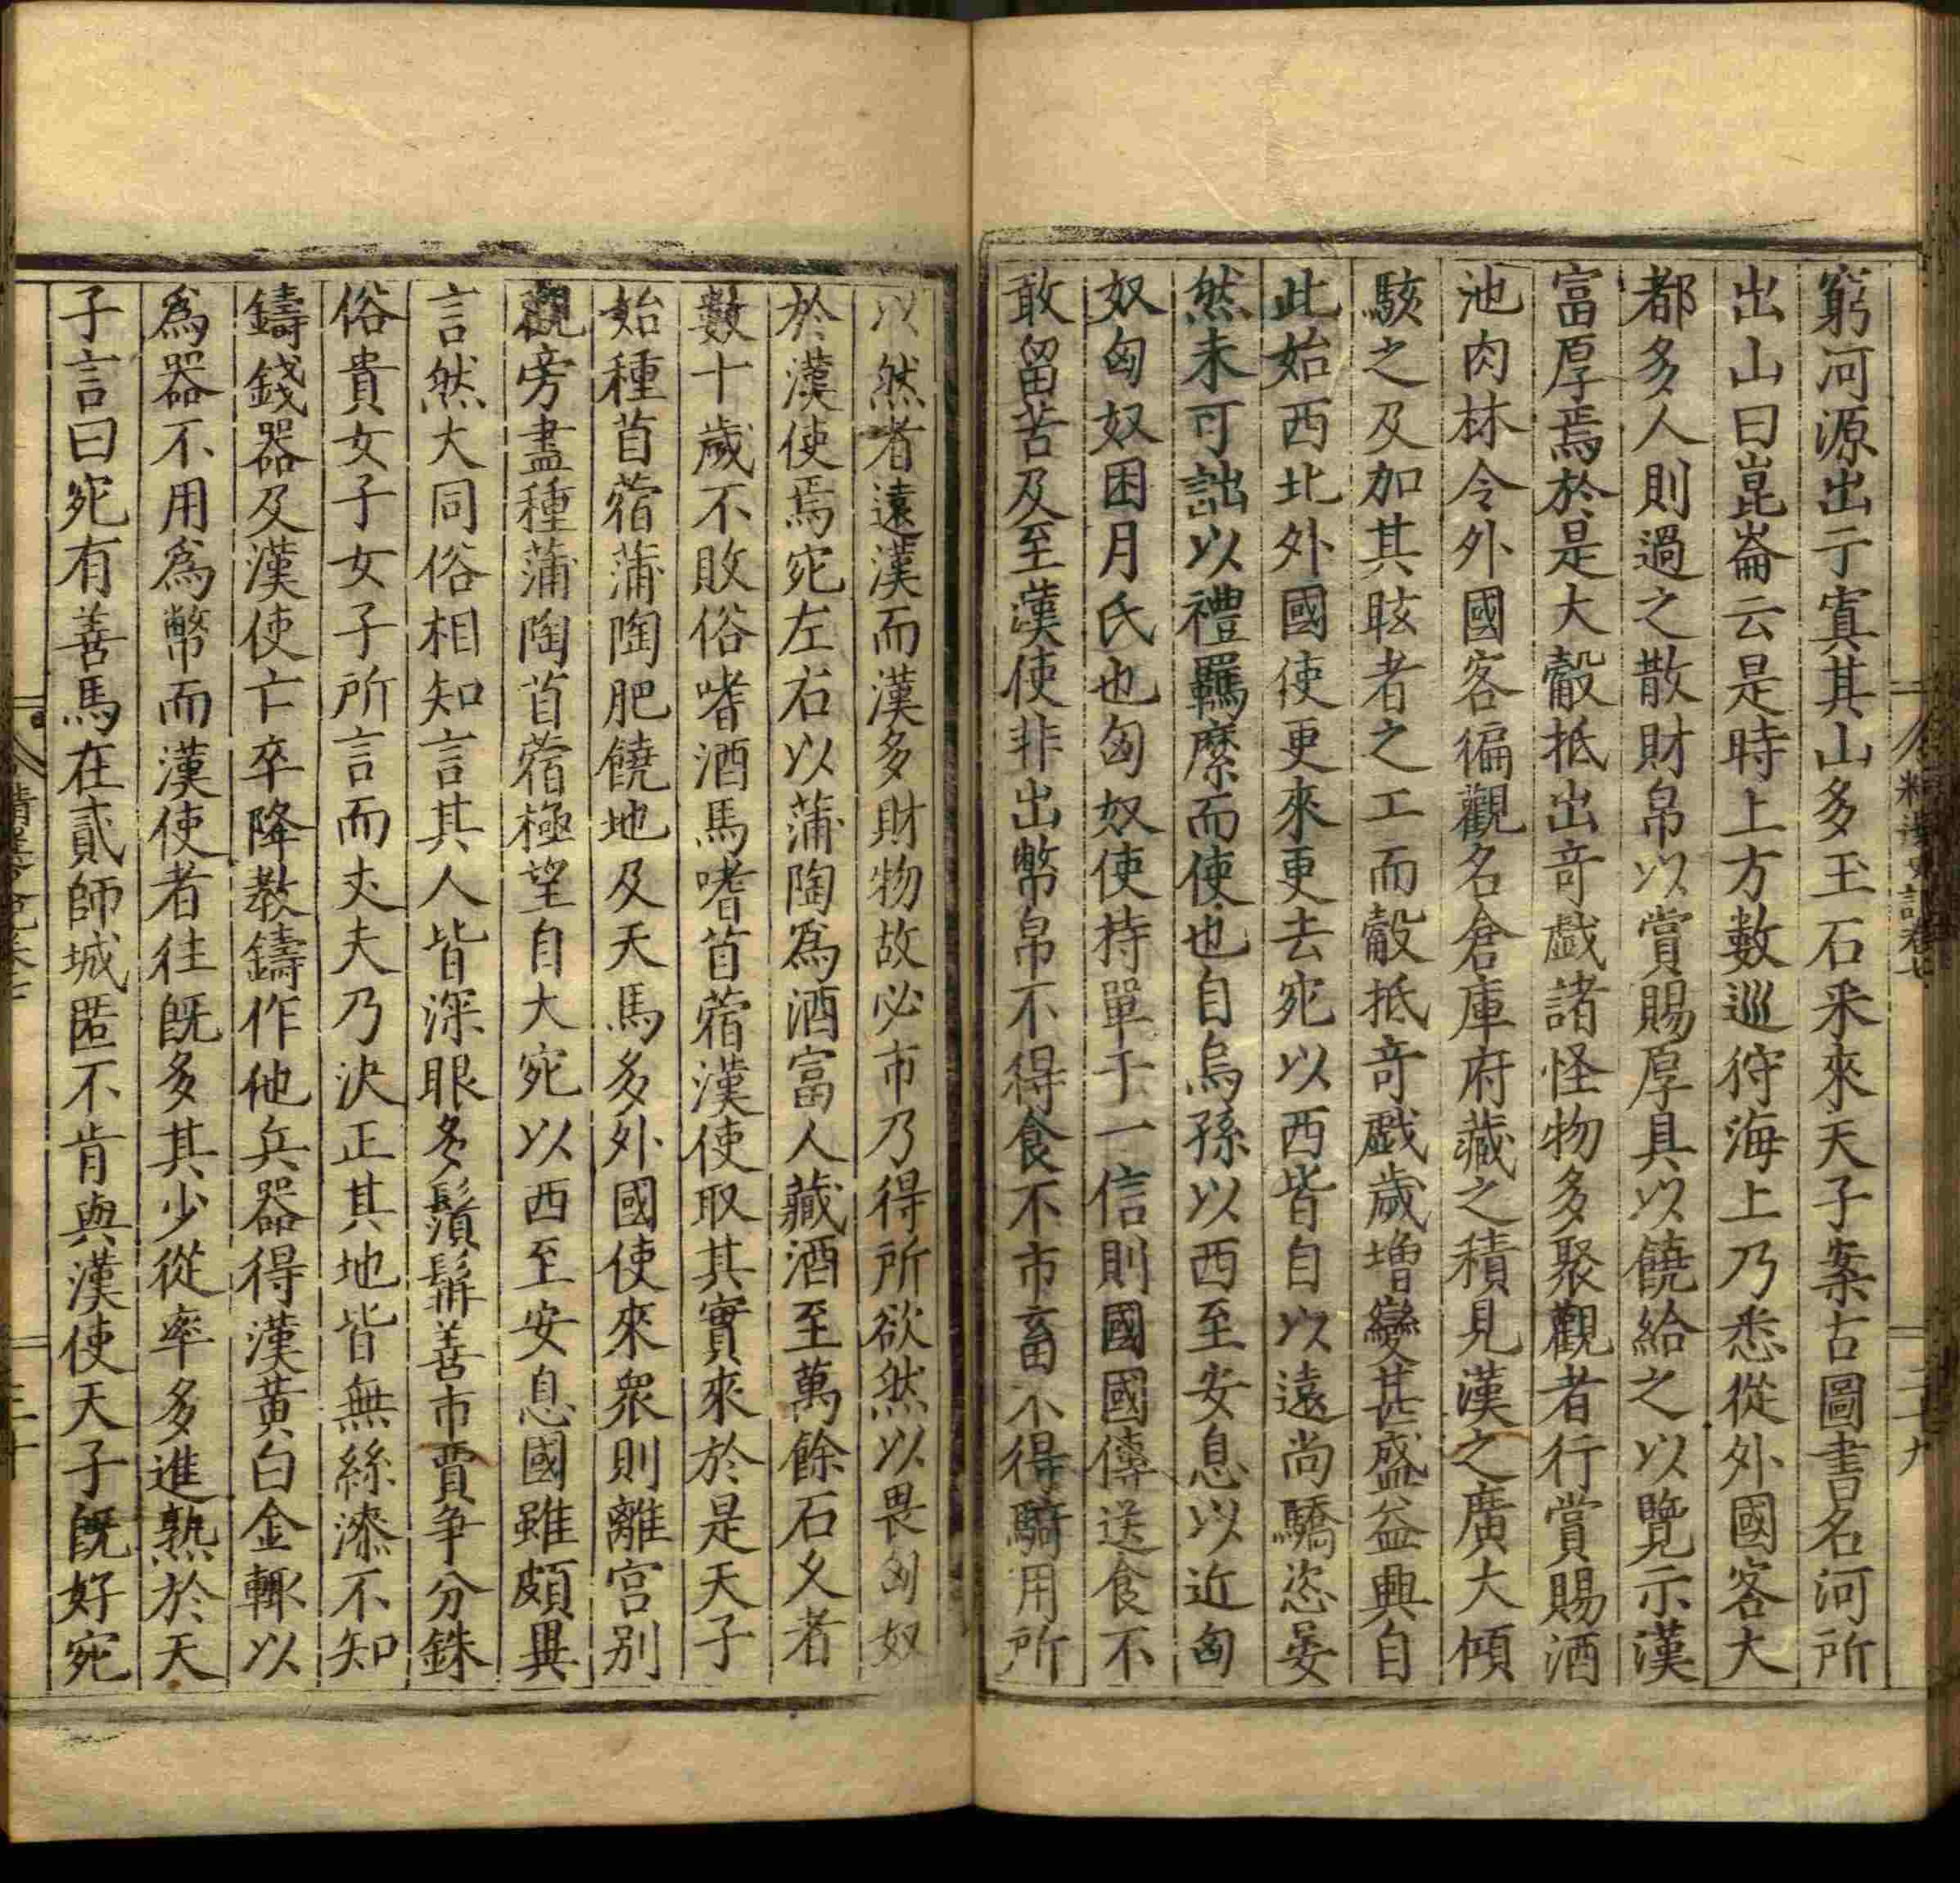 窮河源出于寘其山多玉石采來天子案古圖書名河所
出山曰崑崙云是時上方數巡狩海上乃悉從外國客大
都多人則過之散財帛以賞賜厚具以饒給之以覽示漢
富厚焉於是大觳抵出奇戲諸怪物多聚觀者行賞賜酒
池肉林令外國客徧觀名倉庫府藏之積見漢之廣大傾
駭之及加其眩者之工而觳抵奇戲歲增變甚盛益興自
此始西北外國使更來更去宛以西皆自以遠尚驕恣晏
然未可詘以禮羈縻而使也自烏孫以西至安息以近匈
奴匈奴困月氏也匈奴使持單于一信則國國傳送食不
敢留苦及至漢使非出幣帛不得食不市畜不得騎用所
以然者遠漢而漢多財物故必市乃得所欲然以畏匈奴
於漢使焉宛左右以蒲陶為酒富人藏酒至萬餘石久者
數十歲不敗俗嗜酒馬嗜苜蓿漢使取其實來於是天子
始種苜蓿蒲陶肥饒地及天馬多外國使來衆則離宮别
觀旁盡種蒲陶苜蓿極望自大宛以西至安息國雖頗異
言然大同俗相知言其人皆深眼多鬚髯善市賈爭分銖
俗貴女子女子所言而丈夫乃決正其地皆無絲漆不知
鑄錢器及漢使亡卒降教鑄作他兵器得漢黃白金輒以
爲器不用爲幣而漢使者往旣多其少從率多進熟於天
子言曰宛有善馬在貳師城匿不肯與漢使天子旣好宛